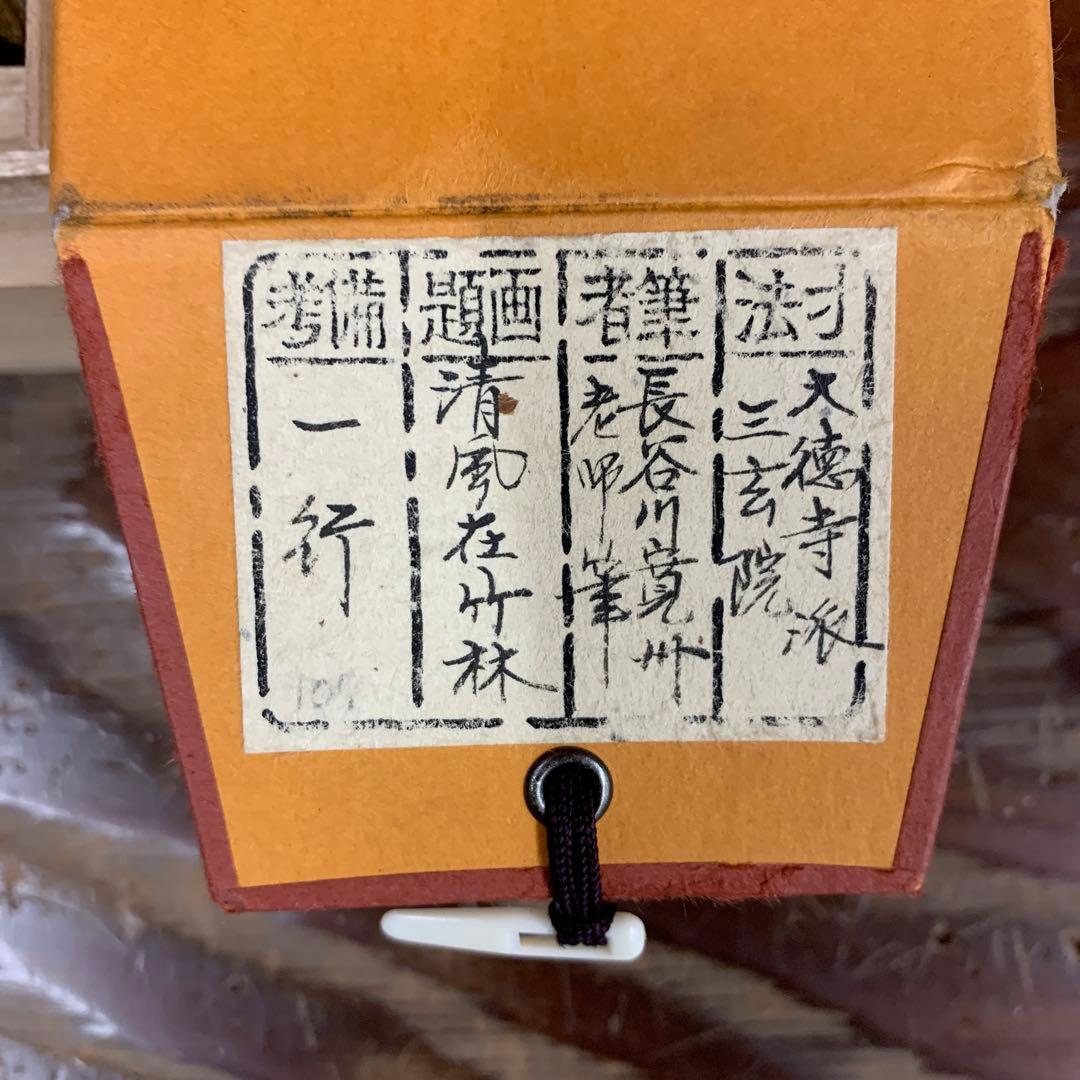 寸法
大徳寺派
三玄院
筆者
長谷川寛州
老师筆
画題
清風在竹林
備考
一行
109